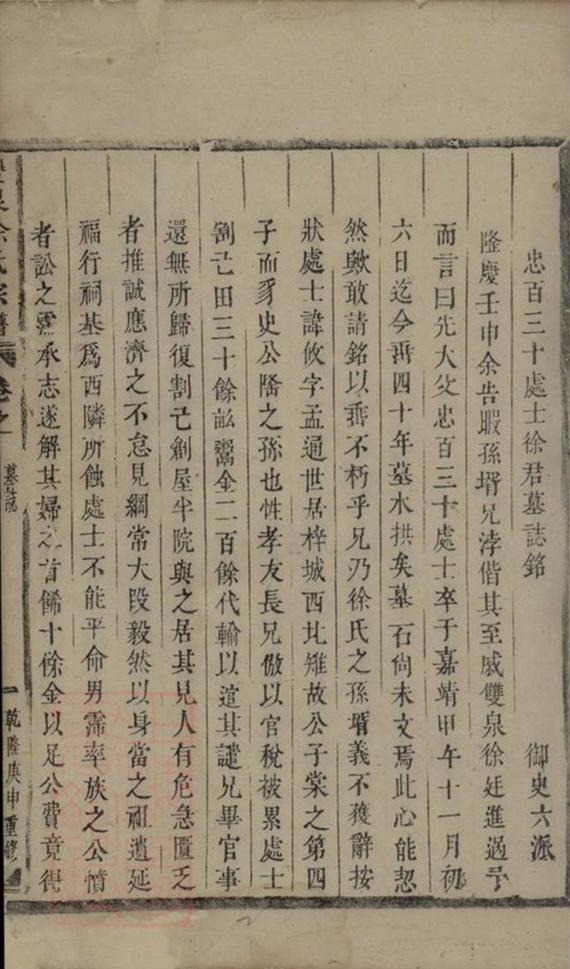 忠百三十處士徐君墓誌銘 御史六派
隆慶壬申余告暇孫壻兄浡偕其至戚雙泉徐廷進過予
而言曰先大父忠百三十處士卒于嘉靖甲午十一月初
六日迄今再四十年墓木拱矣墓石尚未文焉此心能恝
然歟敢請銘以垂不朽乎兄乃徐氏之孫壻義不獲辭按
狀處士諱攸字孟通世居梓城西北雉故公子棠之第四
子而豸史公隆之孫也性孝友長兄倣以官稅被累處士
割己田三十餘畝鬻金二百餘代輸以逭其譴兄畢官事
還無所歸復割己剏屋半院與之居其兄人有危急匱乏
者推誠應濟之不怠見綱常大段毅然以身當之祖遺延
福行祠基爲西隣所蝕處士不能平命男霈率族之公憤
者訟之霈承志遂解其婦之首餙十餘金以足公費竟得
徐氏宗譜 卷之一 墓誌 一 乾隆庚申重修